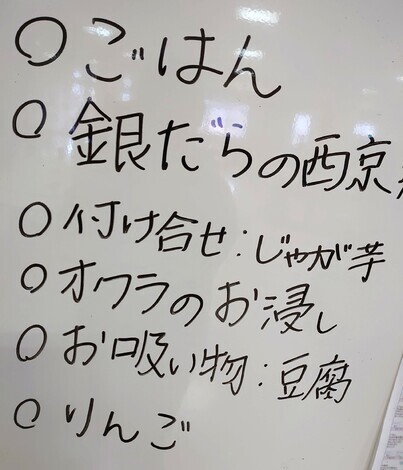 ○ごはん
○銀だらの西京
○付け合せ:じゃが芋
○オクラのお浸し
○お吸い物:豆腐
○りんご